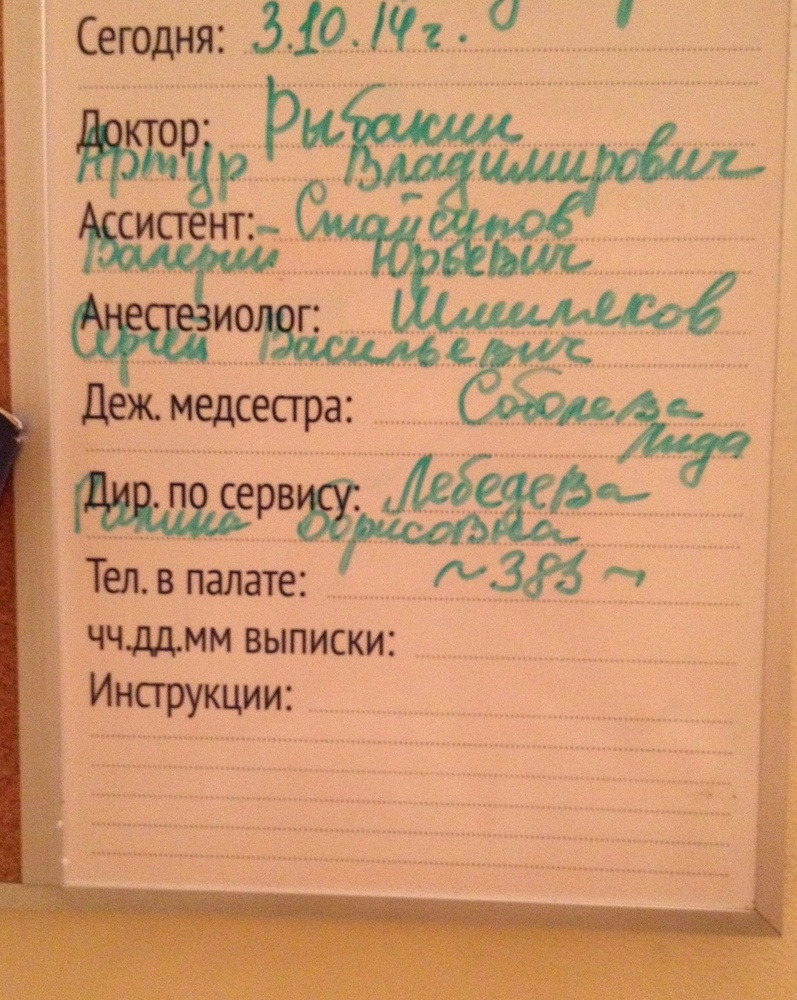 Сегодня: 3.10.14г.
Доктор: Рыбакин
Артур Владимирович
Ассистент: - Стайсупов
Валерий Юрьевич
Анестезиолог: Шмиляков
Сергей Васильевич
Деж. медсестра: Соболева
Лида
Дир. по сервису: Лебедева
Галина Борисовна
Тел. в палате: ~383~
чч.дд.мм выписки:
Инструкции: